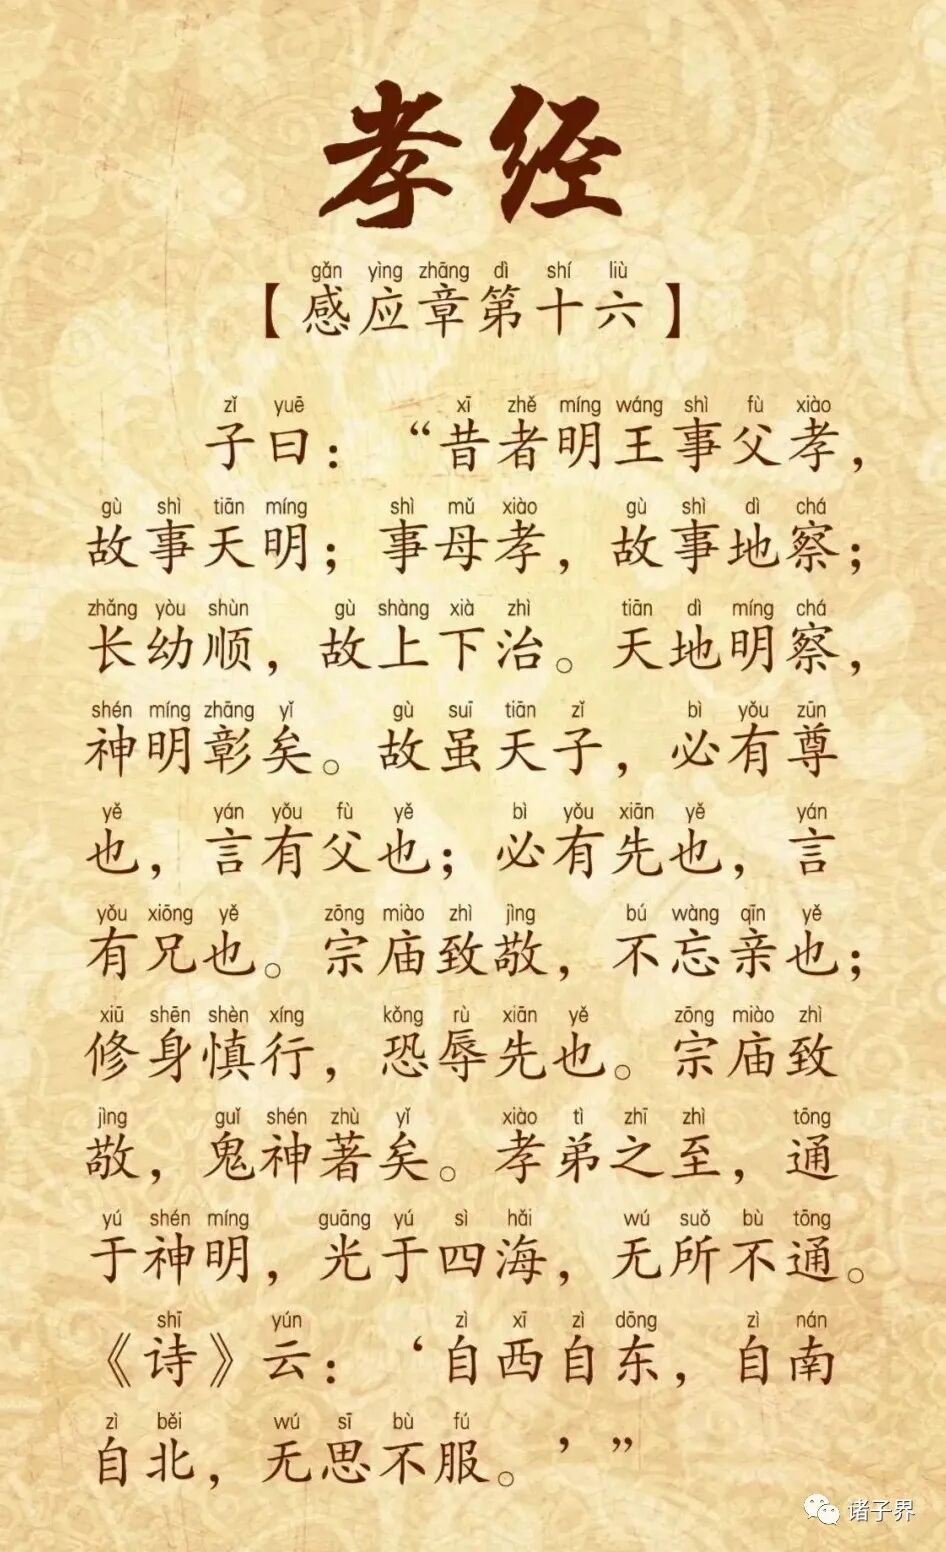 孝经
gǎn yìng zhāng dì shí liù
【感应章第十六】
zǐ yuē xī zhě míng wáng shì fù xiào
子曰：“昔者明王事父孝，
gù shì tiān míng shì mǔ xiào gù shì dì chá
故事天明；事母孝，故事地察；
zhǎng yòu shùn gù shàng xià zhì tiān dì míng chá
长幼顺，故上下治。天地明察，
shén míng zhāng yǐ gù suī tiān zǐ bì yǒu zūn
神明彰矣。故虽天子，必有尊
yě yán yǒu fù yě bì yǒu xiān yě yán
也，言有父也；必有先也，言
yǒu xiōng yě zōng miào zhì jìng bú wàng qīn yě
有兄也。宗庙致敬，不忘亲也；
xiū shēn shèn xíng kǒng rù xiān yě zōng miào zhì
修身慎行，恐辱先也。宗庙致
jìng guǐ shén zhù yǐ xiào tì zhī zhì tōng
敬，鬼神著矣。孝弟之至，通
yú shén míng guāng yú sì hǎi wú suǒ bù tōng
于神明，光于四海，无所不通。
shī yún zì xī zì dōng zì nán
《诗》云：‘自西自东，自南
zì běi wú sī bù fú
自北，无思不服。’”
诸子界